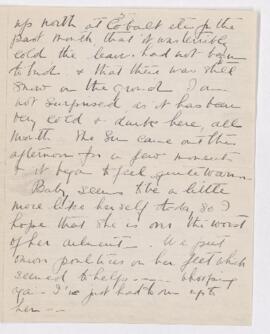 up north at Cobalt etc for the
past month, that it was terribly
cold the leaves had not begun
to bud & that there was still
snow on the ground I am
not surprised as it has been
very cold & dark here, all
month. The Sun came out this
afternoon for a few moments
& it began to feel quite warm
Baby seems to be a little
more like herself today so I
hope that she is over the worst
of her ailment. We put
onion poultices on her feet which
seemed to help - - - - whooping
I've just had to run up to
her - -